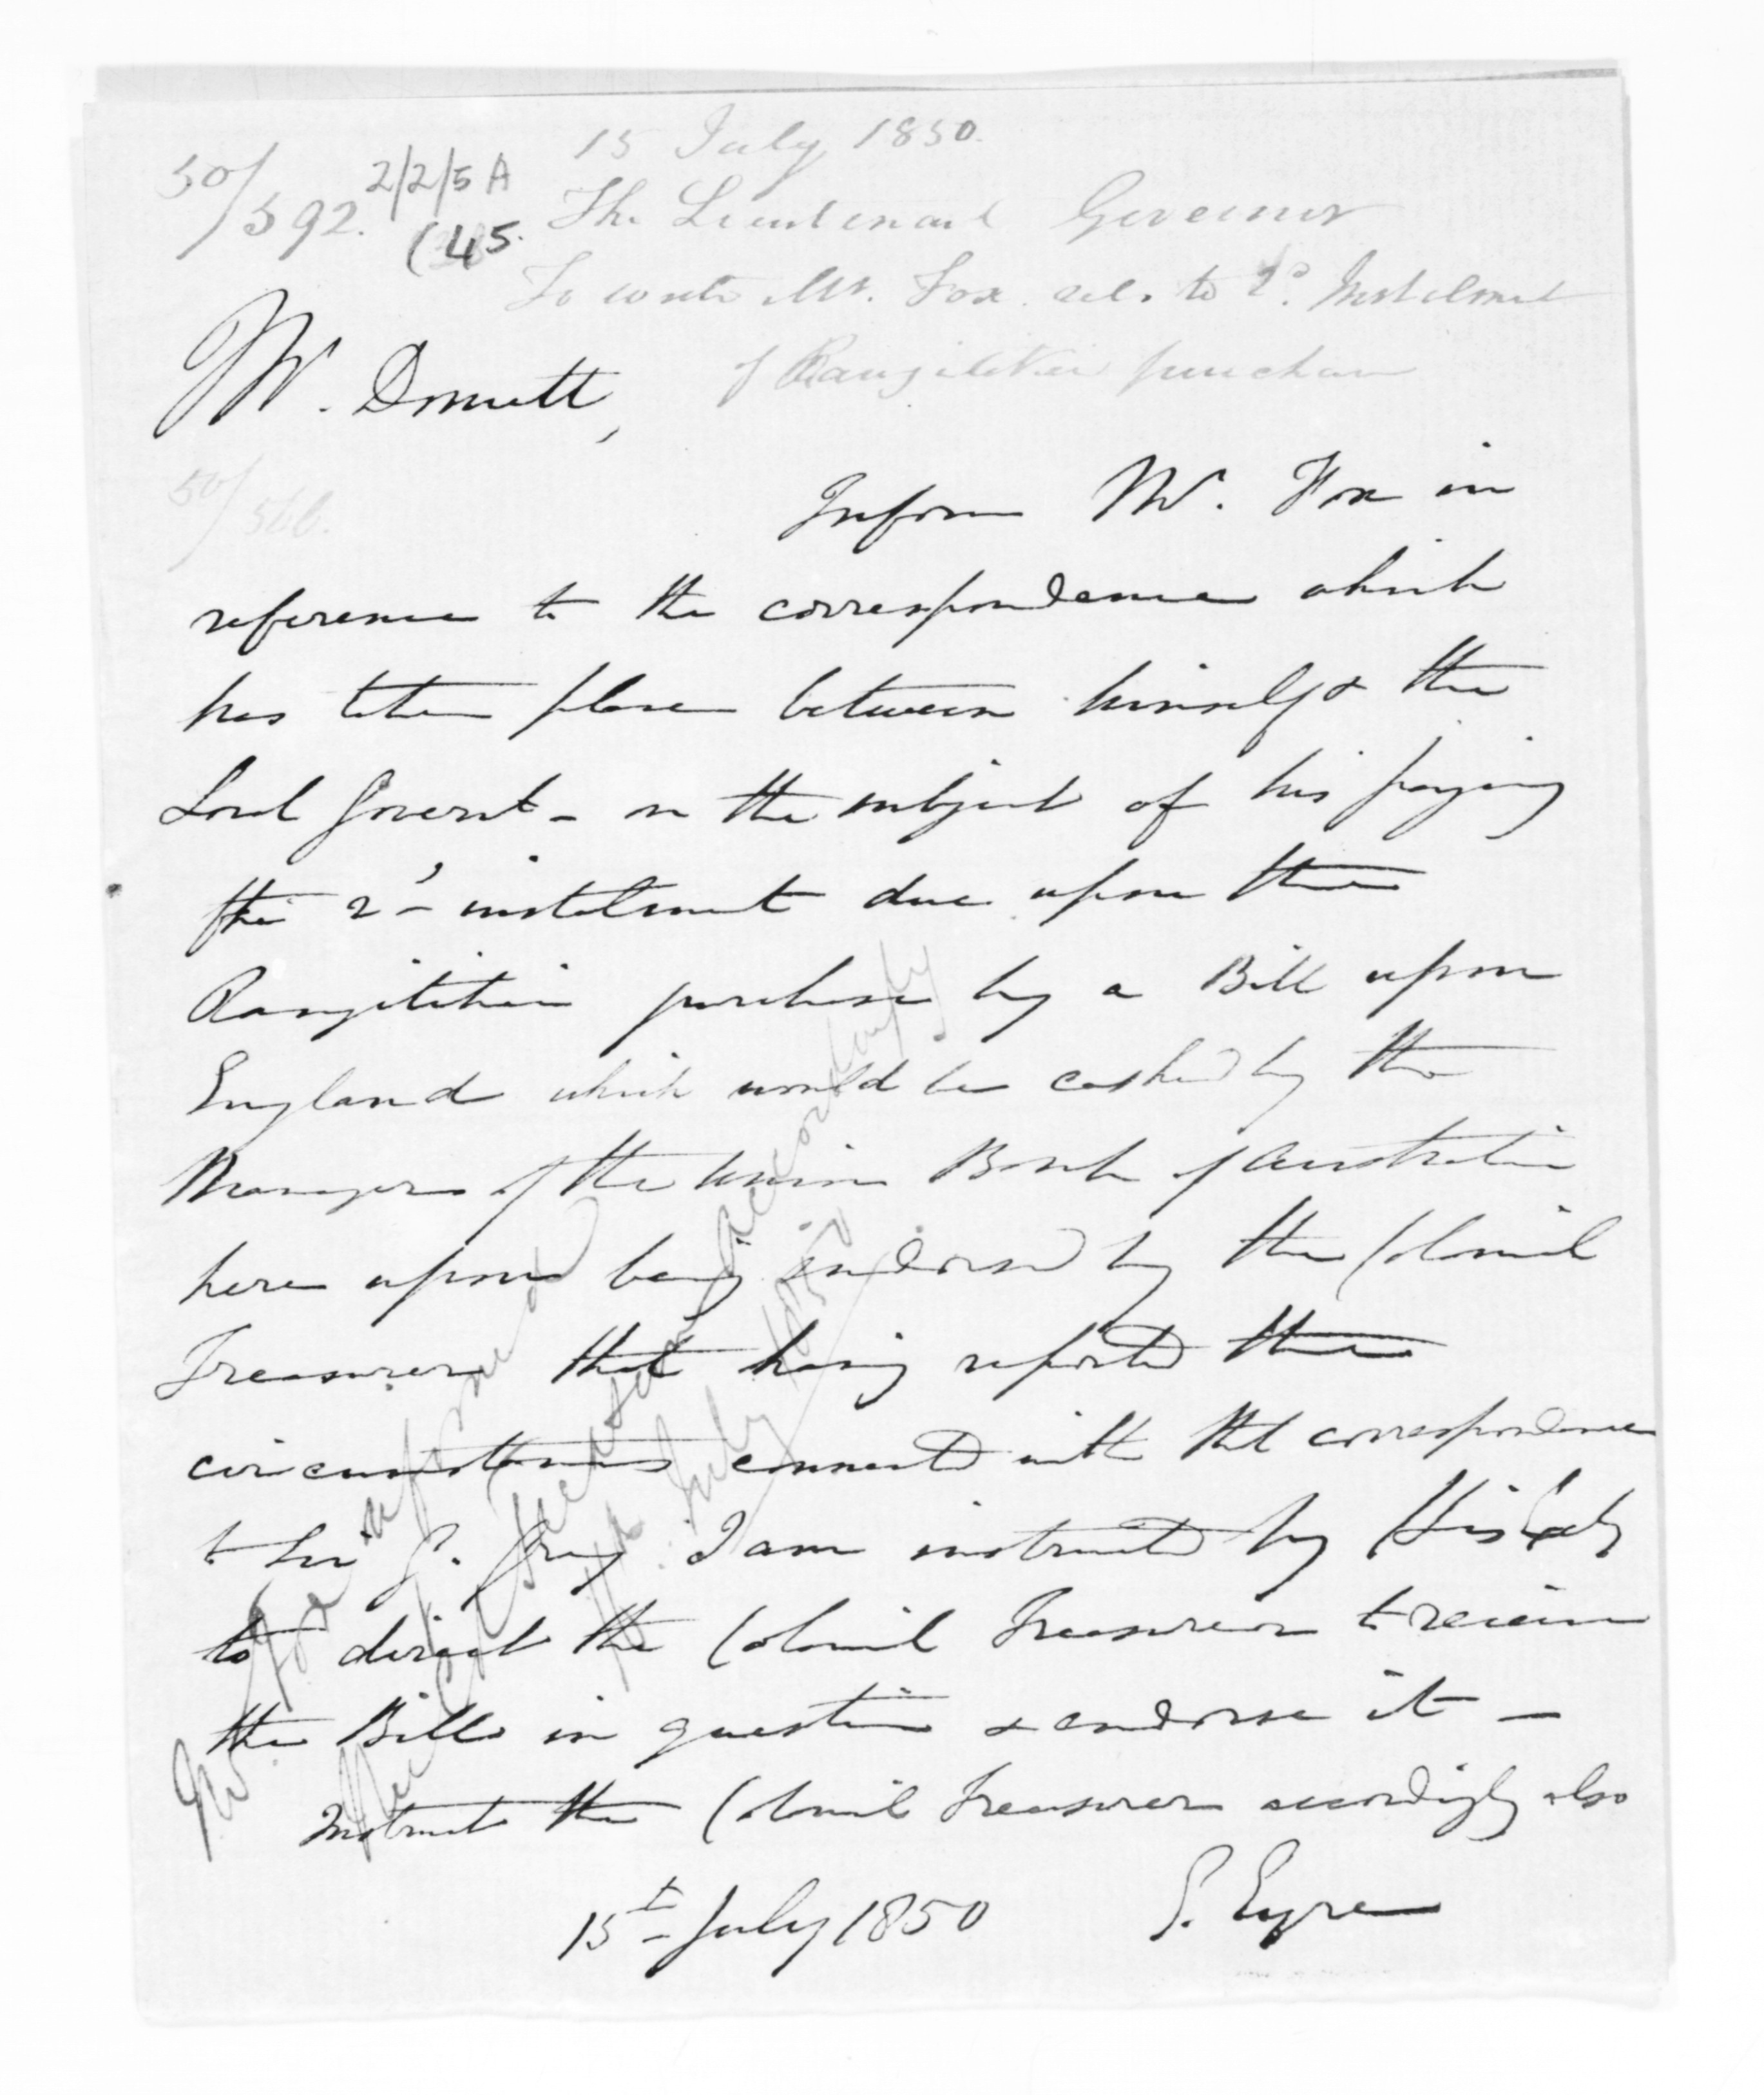 15 July 1850.
50/592. 2/2/5A
(45.
The Lieutenant Governor
To write Mr. Fox rel. to 2d. Instalment
of Rangitikei purchase
Mr. Domett,
50/
Inform Mr. Fox in
reference to the correspondence which
has taken place between himself & the
Local Governt - on the subject of his paying
the 2d instalment due upon the
Rangitikei purchase by a Bill upon
England which would be cashed by the
Manager of the Union Bank of Australia
here upon being endorsed by the Colonial
Treasurer that having reported the
circumstances connected with that correspondence
to Sir G. Grey I am instructed by His Excly
to direct the Colonial Treasurer to receive
the Bill in question & endorse it -
Instruct the Colonial Treasurer accordingly also
15th July 1850 E. Eyre
Mr. Fox informed
The Col. Treasurer accordingly
July 1850